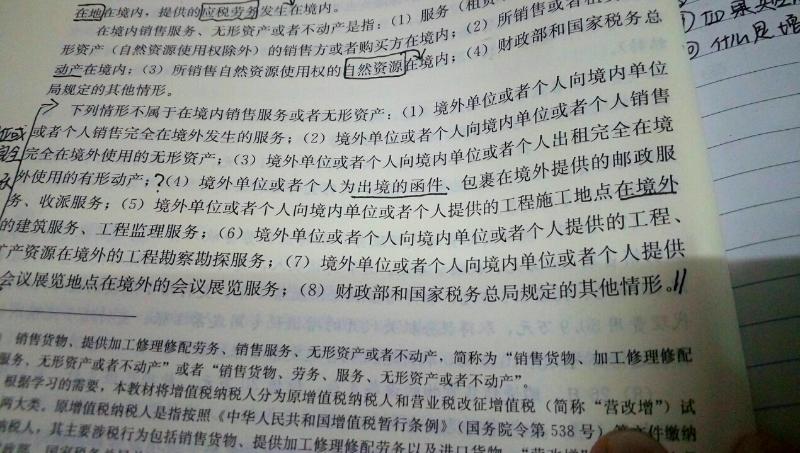 在地在境内，提供的应税劳务发生在境内。
在境内销售服务、无形资产或者不动产是指：（1）服务（租赁
形资产（自然资源使用权除外）的销售方或者购买方在境内；（2）所销售或者租
动产在境内；（3）所销售自然资源使用权的自然资源在境内；（4）财政部和国家税务总
局规定的其他情形。
下列情形不属于在境内销售服务或者无形资产：（1）境外单位或者个人向境内单位
或者个人销售完全在境外发生的服务；（2）境外单位或者个人向境内单位或者个人销售
完全在境外使用的无形资产；（3）境外单位或者个人向境内单位或者个人出租完全在境
外使用的有形动产；?（4）境外单位或者个人为出境的函件、包裹在境外提供的邮政服
务、收派服务；（5）境外单位或者个人向境内单位或者个人提供的工程施工地点在境外
的建筑服务、工程监理服务；（6）境外单位或者个人向境内单位或者个人提供的工程、
矿产资源在境外的工程勘察勘探服务；（7）境外单位或者个人向境内单位或者个人提供
会议展览地点在境外的会议展览服务；（8）财政部和国家税务总局规定的其他情形。
销售货物、提供加工修理修配劳务、销售服务、无形资产或者不动产，简称为“销售货物、加工修理修配
服务、无形资产或者不动产”或者“销售货物、劳务、服务、无形资产或者不动产”。
根据学习的需要，本教材将增值税纳税人分为原增值税纳税人和营业税改征增值税（简称“营改增”）试
两大类。原增值税纳税人是指按照《中华人民共和国增值税暂行条例》（国务院令第 538 号）等文件缴纳
纳税人，其主要涉税行为包括销售货物、提供加工修理修配劳务以及进口货物。“营改增”
什么是增